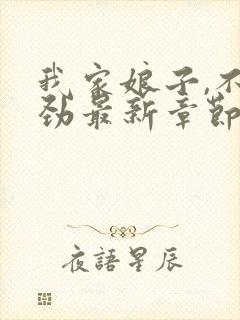 我家娘子,不
劲最新章節
夜語星辰